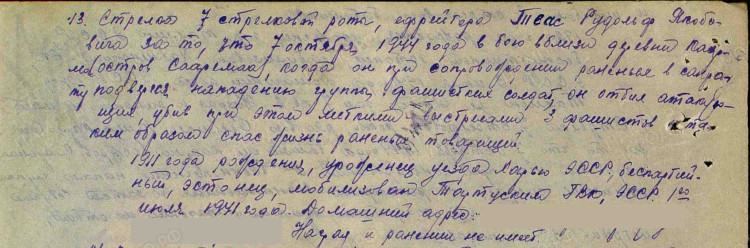 13. Стрелок 7 стрелковой роты, ефрейтора Теас Рудольф Якобо-
вича за то, что 7 октября 1944 года в бою вблизи деревни
(остров Сааремаа), когда он при сопровождении раненых в санро-
ту подвергся нападению группы фашистких солдат, он отбил атакую-
щих убив при этом меткими выстрелами 3 фашистов и та-
ким образом спас жизнь раненых товарищей
1911 года рождения, уроженец уезда Харью ЭССР, беспартий-
ный, эстонец, мобилизован Тартуским ГВК, ЭССР 1го
июля 1941 года. Домашний адрес:
Наград и ранений не имеет